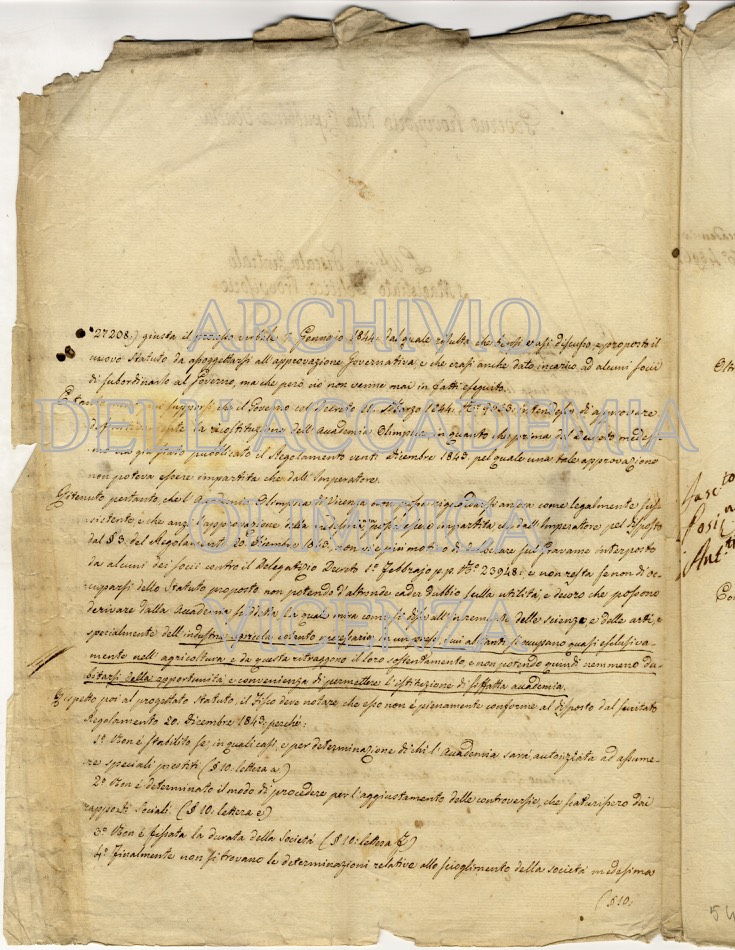 27208.) giusta il processo verbale 7. Gennajo 1844. dal quale risulta che bensì erasi discusso, e proposto il
nuovo Statuto da assoggettarsi all'approvazione Governativa e che erasi anche dato incarico ad alcuni soci
di subordinarlo al Governo, ma che però ciò non venne mai in fatti eseguito.
supporsi che il Governo col Decreto 11. Marzo 1844. N.º intendesse di approvare
la ricostituzione dell'Accademia Olimpica in quanto che prima del decreto medes=
mo era già stato pubblicato il Regolamento venti Dicembre 1843. pel quale una tale approvazione
non poteva essere impartita che dall'Imperatore.
Ritenuto pertanto, che l'Accademia Olimpica di Vicenza non possa riguardarsi ancora come legalmente sus=
sistente, e che anzi l'approvazione della medesima essere impartita che dall'Imperatore pel disposto
dal § 3. del Regolamento 20. Dicembre 1843, non vi è più motivo di sul Gravame interposto
da alcuni dei socii contro il Delegatizio Decreto 1º Febbrajo p.p. N.º 23948: e non resta se non di oc=
cuparsi dello Statuto proposto non potendo d'altronde cader dubbio sulla utilità, e decoro che possono
derivare dalla Accademia suddetta la quale mira com'essi disse all'incremento delle scienze e delle arti, e
specialmente dell'industria agricola cotanto necessario in un paese i cui abitanti si occupano quasi esclusiva=
mente nell'agricoltura e da questa ritraggono il loro sostentamento e non potendo quindi nemmeno du=
bitarsi della opportunità e convenienza di permettere l'istituzione di siffatta accademia.
Rispetto poi al progettato Statuto, il Fisco deve notare, che esso non è pienamente conforme al disposto dal succitato
Regolamento 20. Dicembre 1843: perchè:
1º Non è stabilito se, in quali casi, e per determinazione di chi l'Accademia sarà autorizzata ad assume=
re speciali prestiti (§ 10: lettera a)
2º Non è determinato il modo di procedere per l'aggiustamento delle controversie, che scaturissero dai
rapporti sociali (§ 10: lettera e)
3º Non è fissata la durata della Società (§ 10: lettera f)
4º Finalmente non si trovano le determinazioni relative allo scioglimento della società medesima
(§ 10:
ARCHIVIO
DELL'ACCADEMIA
OLIMPICA
VICENZA